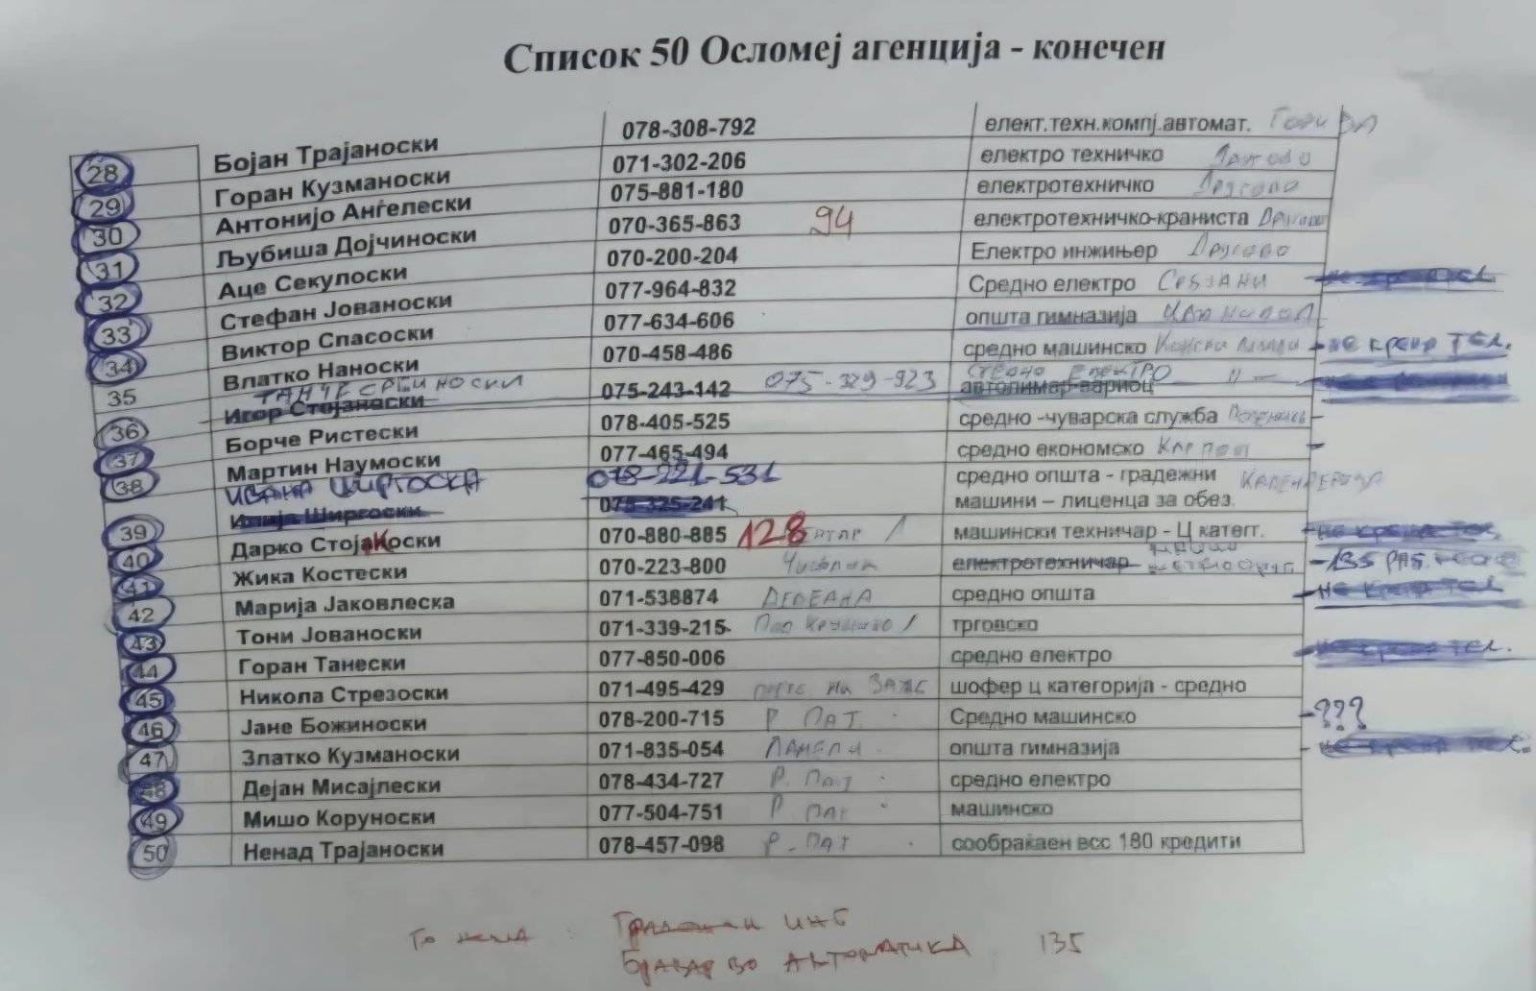 Список 50 Осломеј агенција - конечен
28 Бојан Трајаноски 078-308-792 елект.техн.компј.автомат.
29 Горан Кузманоски 071-302-206 електро техничко
30 Антонијо Анѓелески 075-881-180 електротехничко Другово
31 Љубиша Дојчиноски 070-365-863 94 електротехничко-краниста Другово
32 Аце Секулоски 070-200-204 Електро инжињер Другово
33 Стефан Јованоски 077-964-832 Средно електро Србјани
34 Виктор Спасоски 077-634-606 општа гимназија
35 Влатко Наноски 070-458-486 средно машинско - не крена тел.
ТАНЧЕ СРБИНОСКИ 075-329-923 СРЕДНО ЕЛЕКТРО
36 Игор Стојаноски 075-243-142 автолимар-вариоц
37 Борче Ристески 078-405-525 средно -чуварска служба
38 Мартин Наумоски 077-465-494 средно економско
ИВАНА ШИРГОСКА 078-221-531 средно општа - градежни
39 Илија Ширгоски 075-325-241 машини – лиценца за обез.
40 Дарко Стојакоски 070-880-885 128 машински техничар - Ц категг.
41 Жика Костески 070-223-800 електротехничар -135
42 Марија Јаковлеска 071-538874 средно општа
43 Тони Јованоски 071-339-215 трговско
44 Горан Танески 077-850-006 средно електро
45 Никола Стрезоски 071-495-429 шофер ц категорија - средно
46 Јане Божиноски 078-200-715 Р. ПАТ. Средно машинско -???
47 Златко Кузманоски 071-835-054 општа гимназија
48 Дејан Мисајлески 078-434-727 Р. ПАТ средно електро
49 Мишо Коруноски 077-504-751 Р ПАТ машинско
50 Ненад Трајаноски 078-457-098 Р. ПАТ сообраќаен всс 180 кредити
ИНГ
АВТОМАТИКА 135